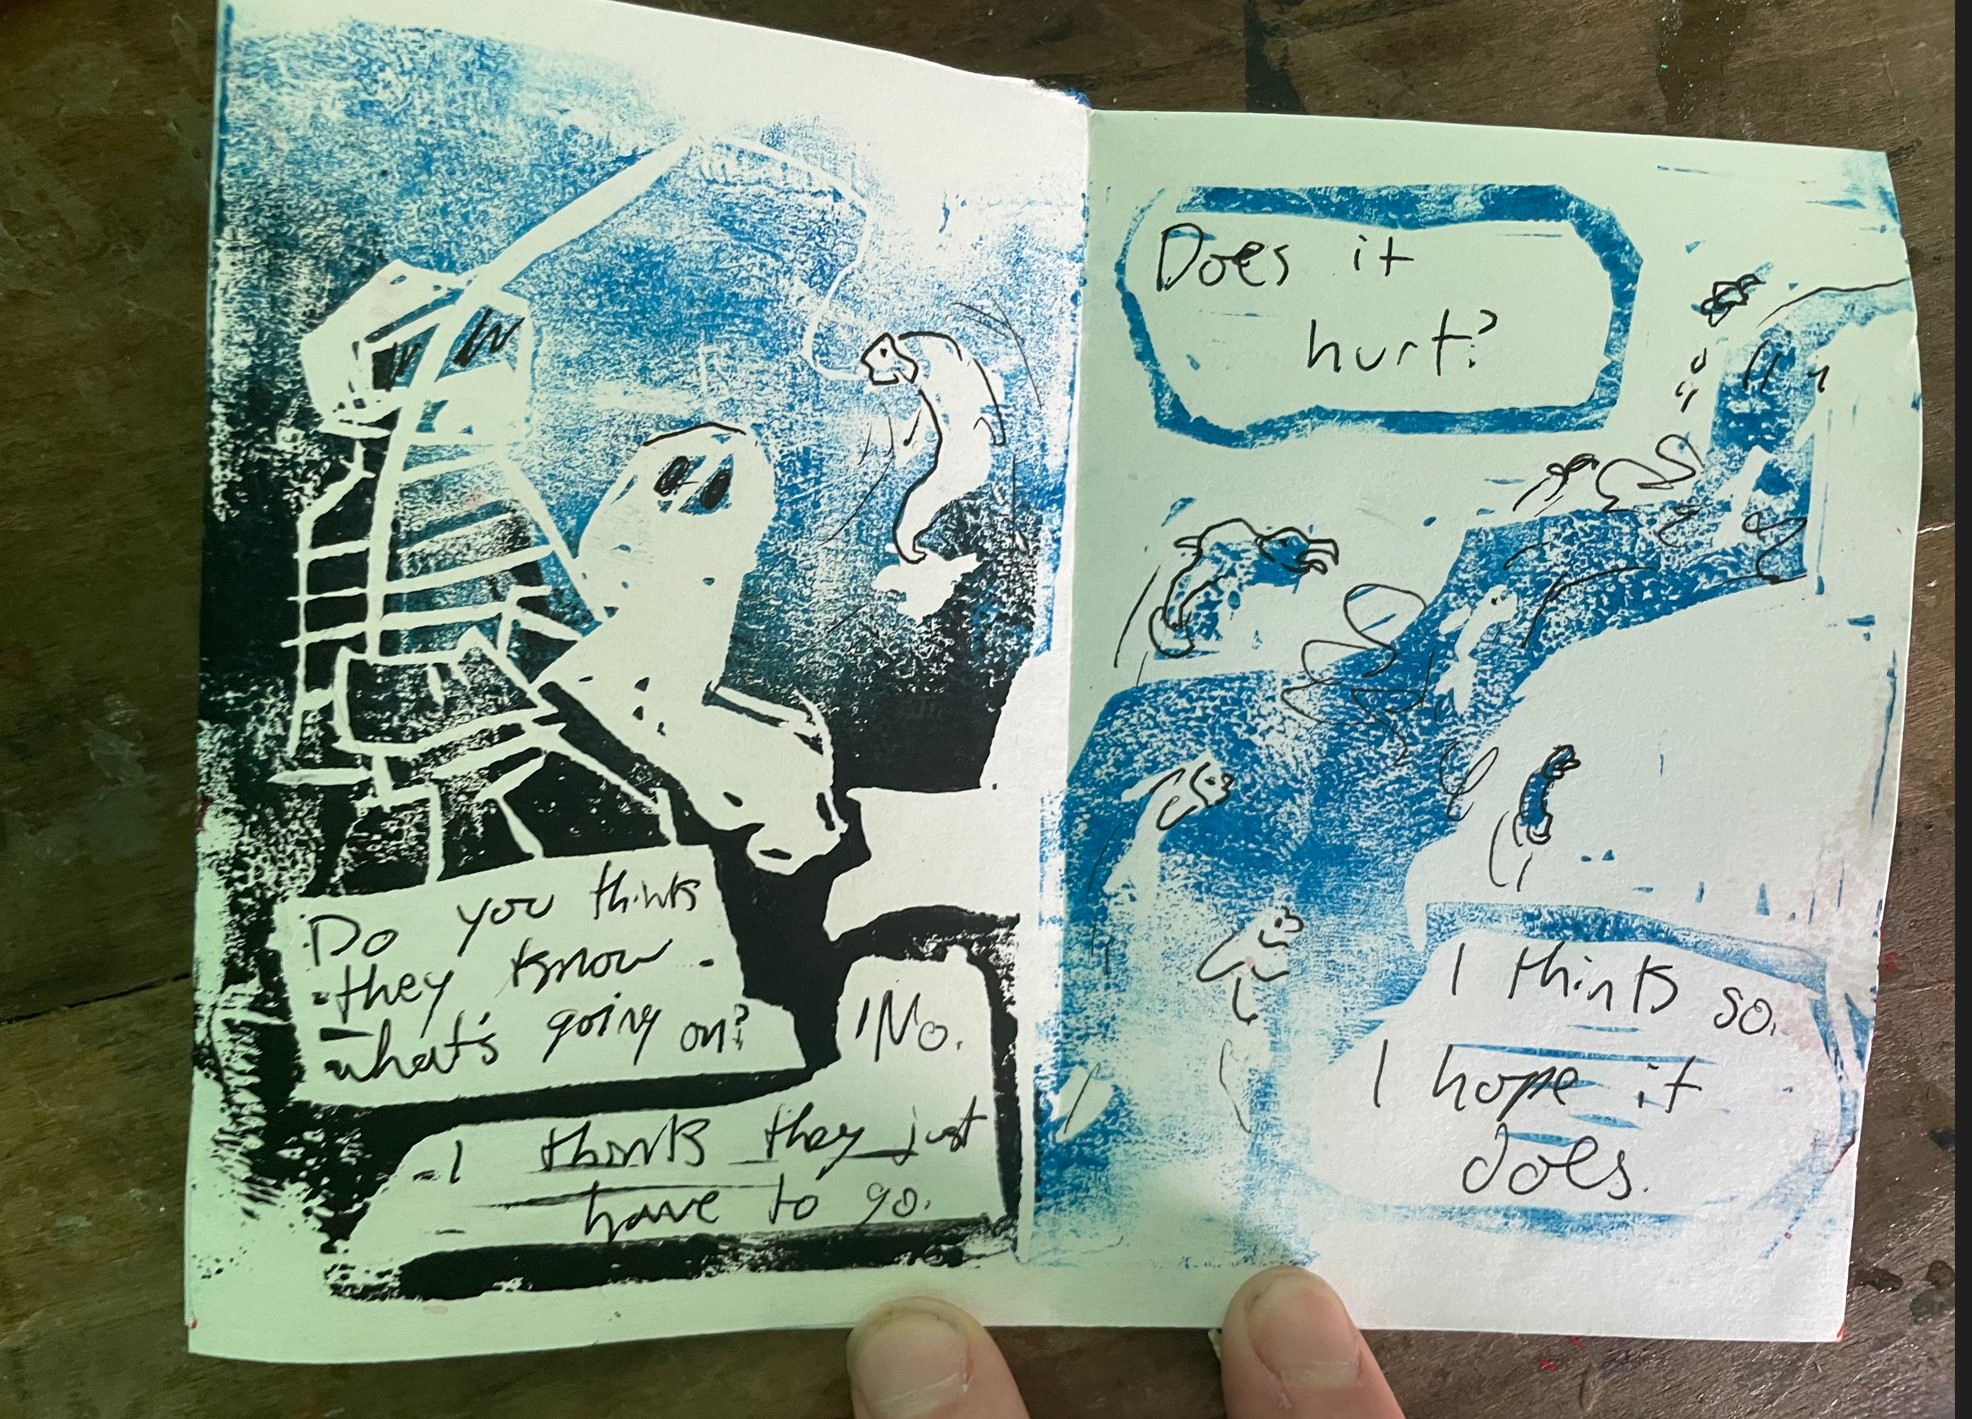 Do you think
they know
what's going on?
No.
I think they just
have to go.
Does it
hurt?
I think so.
I hope it
does.